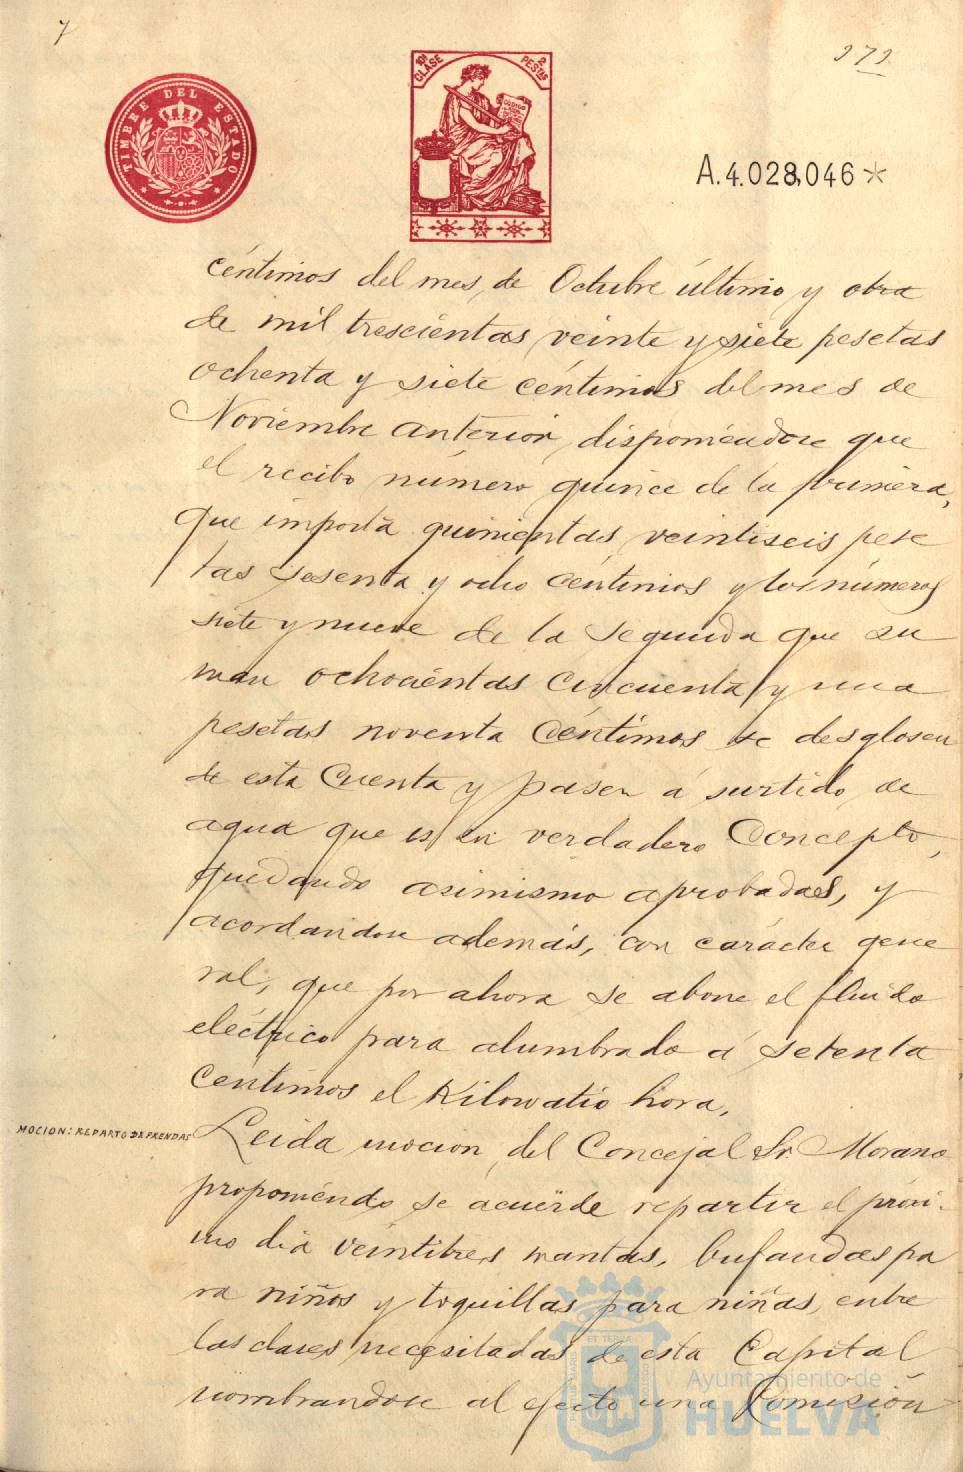 7
272
TIMBRE DEL ESTADO
10ª CLASE
2 PESTAS
CÓDIGO
A.4.028,046*
céntimos del mes de Octubre último y otra
de mil trescientas veinte y siete pesetas
ochenta y siete céntimos del mes de
Noviembre anterior, disponiendose que
el recibo número quince de la primera,
que importa quinientas veintiseis pese
tas sesenta y ocho céntimos y los números
siete y nueve de la segunda que su
man ochocientas cincuenta y una
pesetas noventa céntimos se desglosen
de esta cuenta y pasen á surtido de
agua que es su verdadero concepto,
quedando asimismo aprobadas, y
acordandose además, con carácter gene
ral, que por ahora se abone el fluido
eléctrico para alumbrado á setenta
centimos el Kilowatio hora.
MOCION: REPARTO DE PRENDAS
Leida mocion del Concejal Sr. Morano
proponiendo se acuerde repartir el próxi-
mo dia veintitres mantas, bufandas pa
ra niños y toquillas para niñas, entre
las clases necesitadas de esta Capital
nombrandose al efecto una Comisión
ET TERRA
Ayuntamiento de
HUELVA